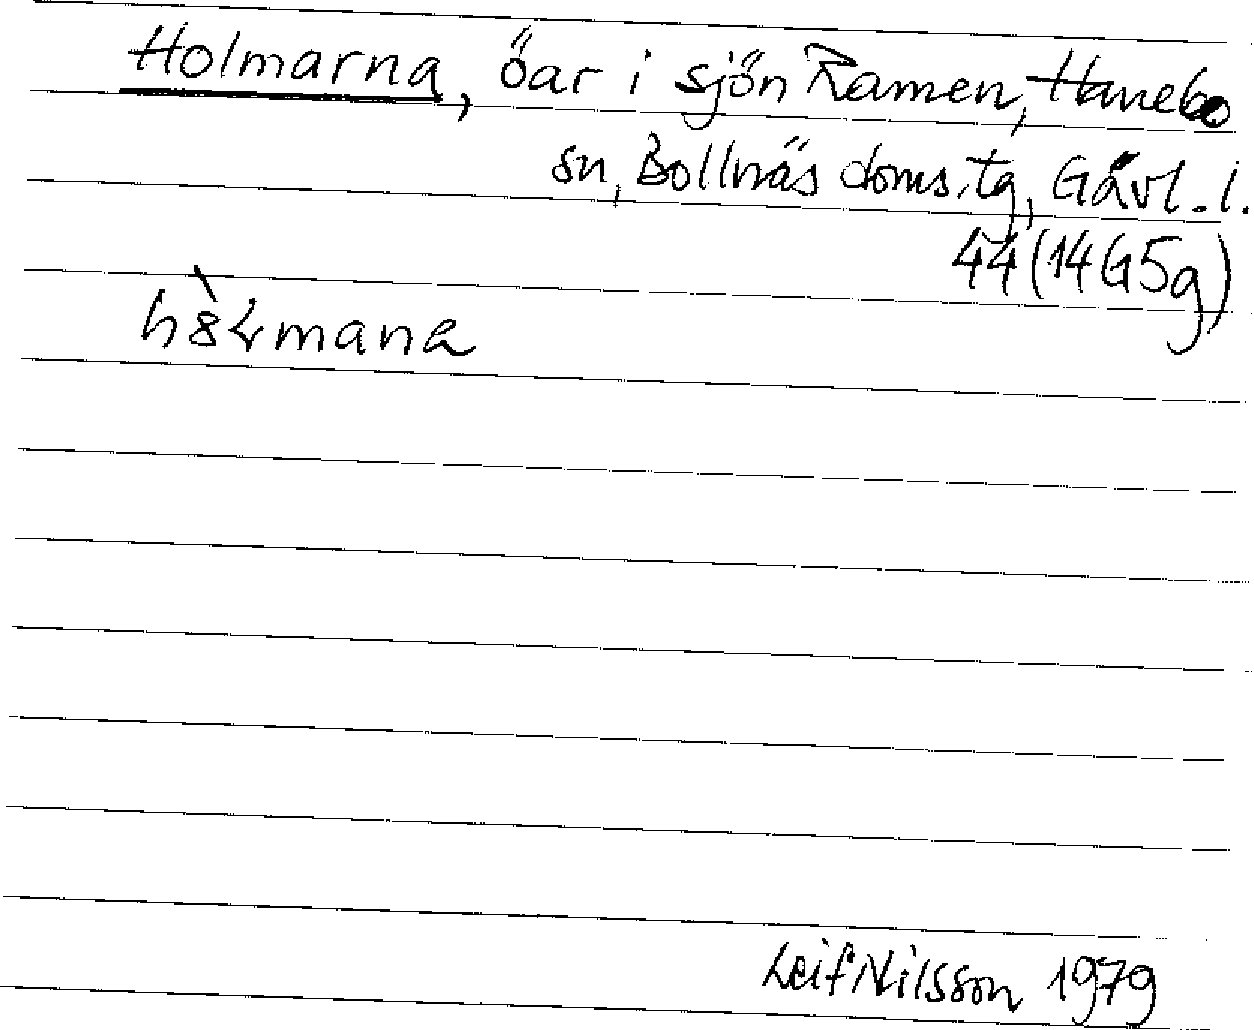 Holmarna, öar i sjön Ramen, Hanebo
sn, Bollnäs doms.tg, Gävl. l.
44 (14G5g)
Leif Nilsson 1979